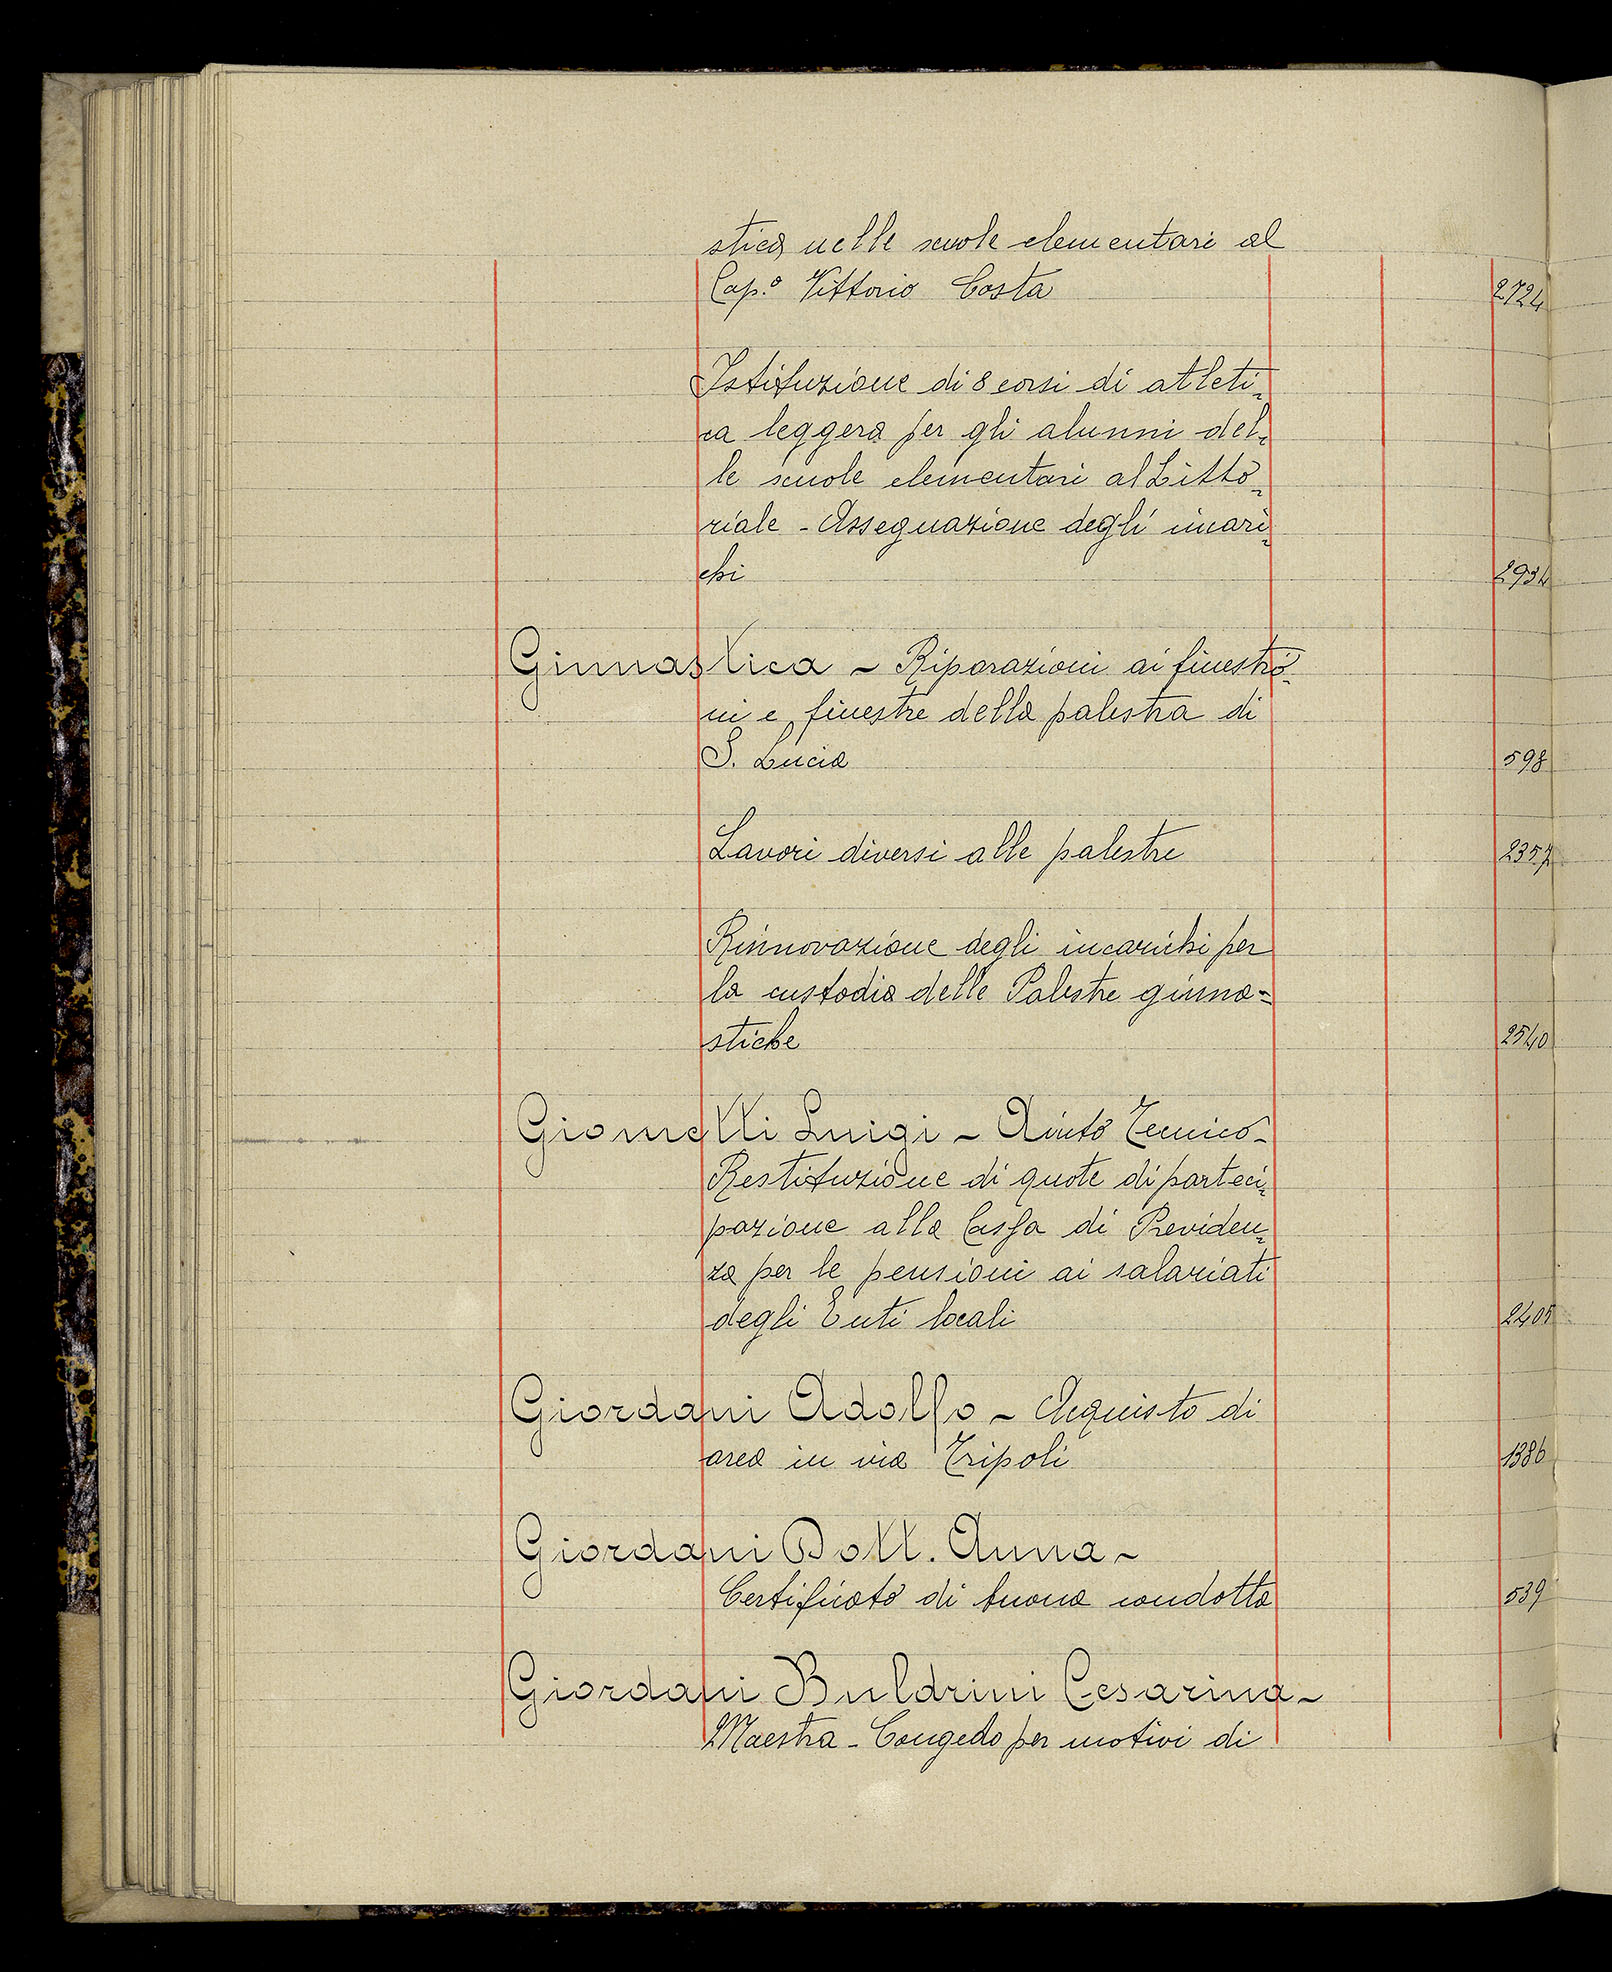 stica nelle scuole elementari al
Cap.º Vittorio Costa 2724
Istituzione di 8 corsi di atleti-
ca leggera per gli alunni del-
le scuole elementari al Litto-
riale - Assegnazione degli incari-
chi 2934
Ginnastica - Riparazioni ai finestro-
ni e finestre della palestra di
S. Lucia 598
Lavori diversi alle palestre 2357
Rinnovazione degli incarichi per
la custodia delle Palestre ginna=
stiche 2540
Giometti Luigi - Aiuto Tecnico-
Restituzione di quote di parteci-
pazione alla Cassa di Previden-
za per le pensioni ai salariati
degli Enti locali 2405
Giordani Adolfo - Acquisto di
area in via Tripoli 1386
Giordani Dott. Anna -
Certificato di buona condotta 539
Giordani Buldrini Cesarina -
Maestra - Congedo per motivi di